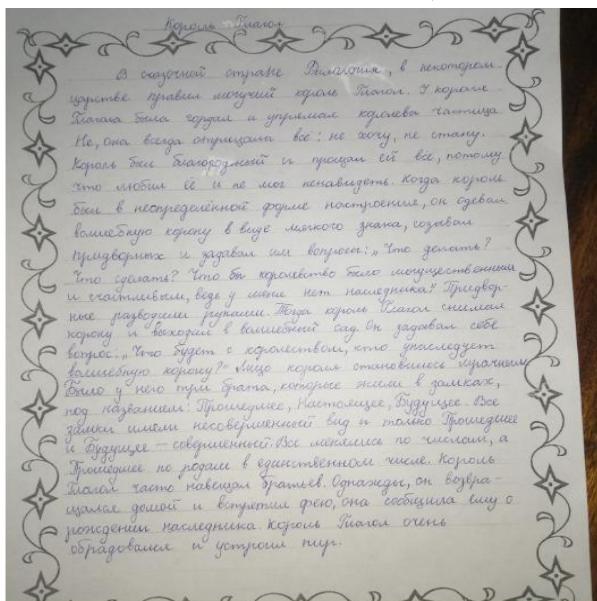 Король Глагол
В сказочной стране Филологии, в некотором
царстве правил могучий король Глагол. У короля
Глагола была гордая и упрямая королева частица
Не, она всегда отрицала всё: не хочу, не стану.
Король был благородный и прощал ей все, потому
что любил её и не мог ненавидеть. Когда король
был в неопределённой форме настроения, он одевал
волшебную корону в виде мягкого знака, созывал
придворных и задавал им вопросы: „Что делать?
Что сделать? Что бы королевство было могущественным
и счастливым, ведь у меня нет наследника!" Придвор-
ные разводили руками. Тогда король Глагол снимал
корону и выходил в волшебный сад. Он задавал себе
вопрос: „Что будет с королевством, кто унаследует
волшебную корону?" Лицо короля становилось мрачным.
Было у него три брата, которые жили в замках,
под названием: Прошедшее, Настоящее, Будущее. Все
замки имели несовершенный вид и только Прошедшее
и Будущее – совершенный. Все менялись по числам, а
Прошедшее по родам в единственном числе. Король
Глагол часто навещал братьев. Однажды, он возвра-
щался домой и встретил фею, она сообщила ему о
рождении наследника. Король Глагол очень
обрадовался и устроил пир.